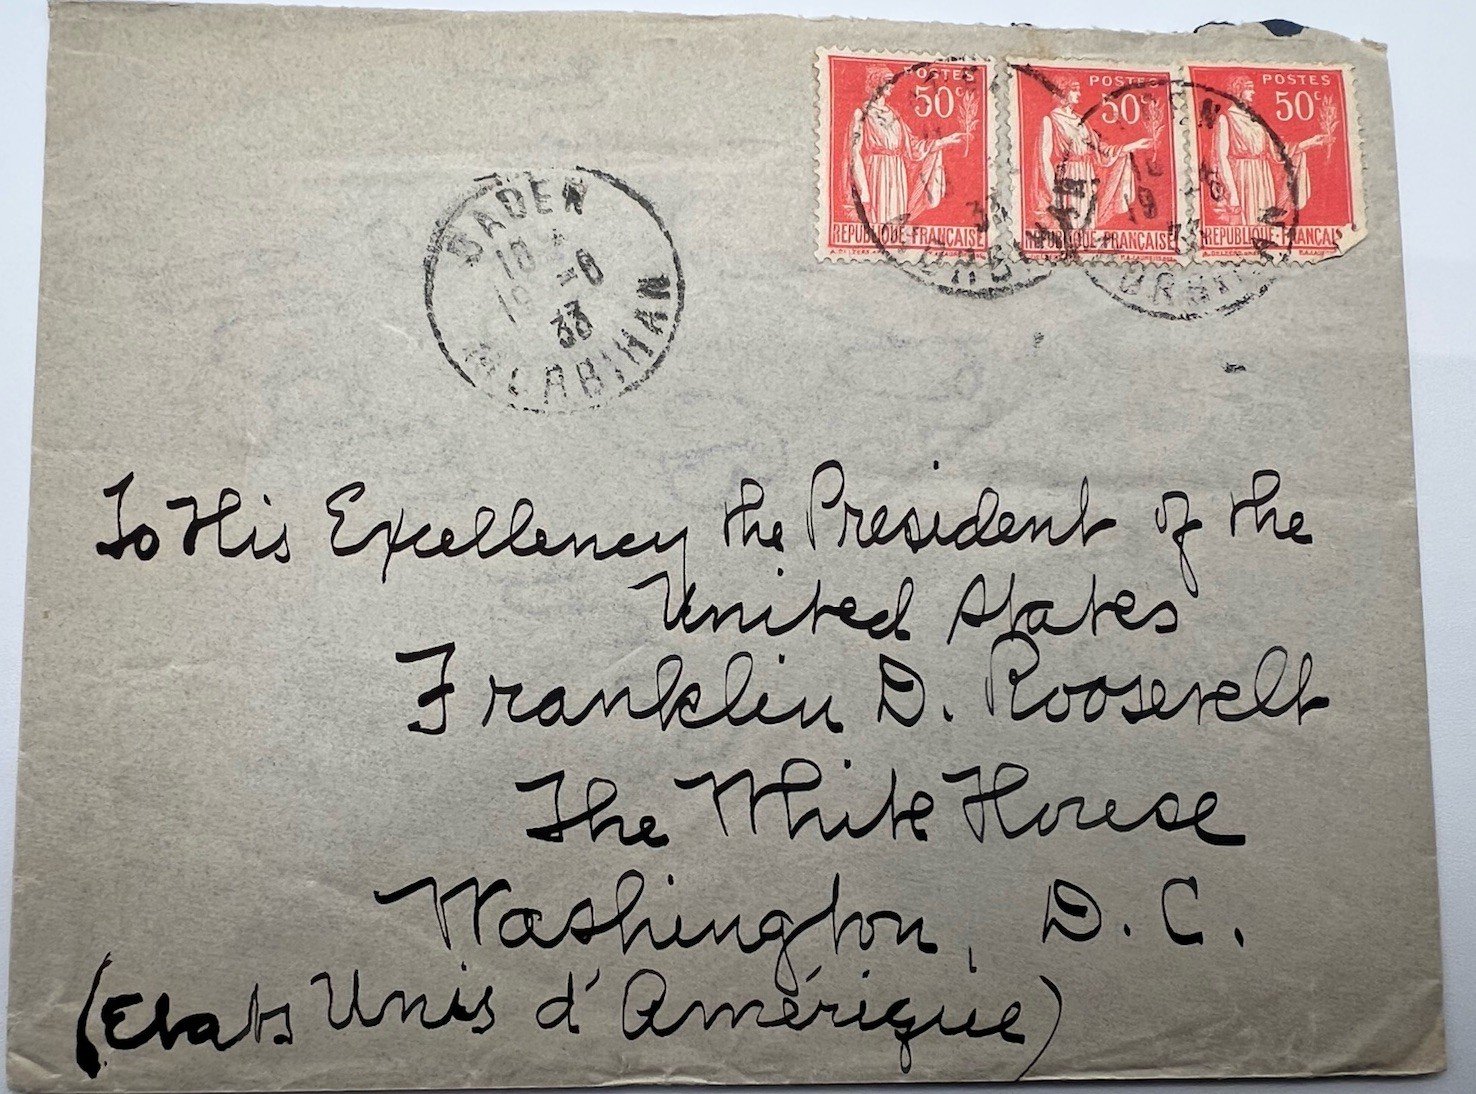 POSTES
50c
REPUBLIQUE-FRANÇAISE
POSTES
50c
REPUBLIQUE-FRANÇAISE
POSTES
50c
REPUBLIQUE-FRANÇAI
BADEN
10
-8
33
MORBIHAN
MORBIHAN
19
MORBIHAN
To His Excellency the President of the
United States
Franklin D. Roosevelt
The White House
Washington, D.C.
(Etats Unis d'Amérique)